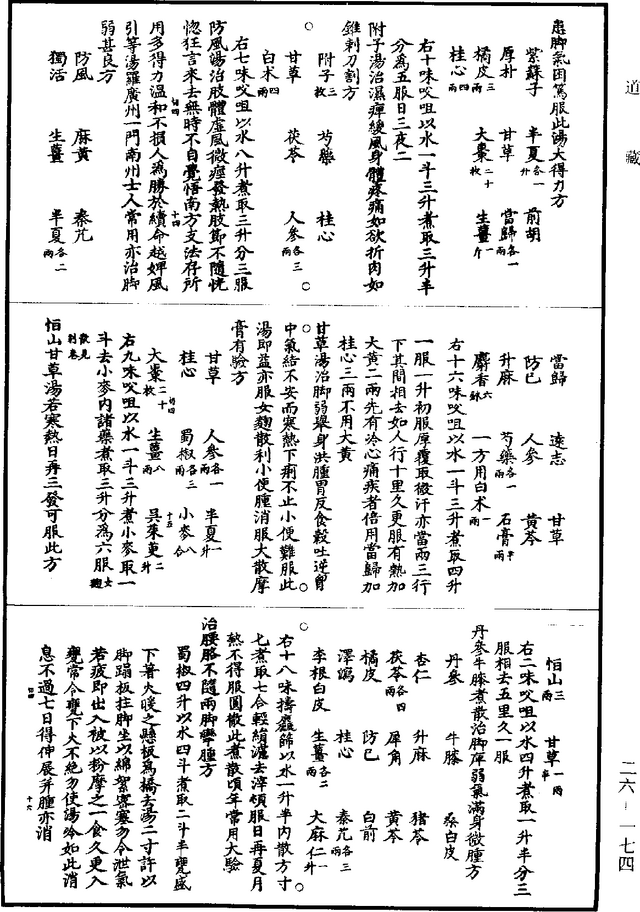 道藏
患脚氣困篤服此湯大得力方
紫蘇子 半夏各一升 前胡
厚朴 甘草 當歸各一兩
橘皮三兩 大棗二十枚 生薑一斤
桂心四兩
右十味㕮咀以水一斗三升煮取三升半
分為五服日三夜二
附子湯治濕痺緩風身體疼痛如欲折肉如
錐刺刀割方
附子三枚 芍藥 桂心
甘草 茯苓 人參各三兩
白朮四兩
右七味㕮咀以水八升煮取三升分三服
防風湯治肢體虛風微痙發熱肢節不隨恍
惚狂言來去無時不自覺悟南方支法存所
用多得力溫和不損人為勝於續命越婢風
引等湯羅廣州一門南州士人常用亦治脚
弱甚良方
防風 麻黃 秦艽
獨活 生薑 半夏各二兩
當歸 遠志 甘草
防己 人參 黃芩
升麻 芍藥各一兩 石膏半兩
麝香六銖 一方用白朮一兩
右十六味㕮咀以水一斗三升煮取四升
一服一升初服厚覆取微汗亦當兩三行
下其間相去如人行十里久更服有熱加
大黃二兩先有冷心痛疾者倍用當歸加
桂心三兩不用大黃
甘草湯治脚弱舉身洪腫胃反食穀吐逆胷
中氣結不安而寒熱下痢不止小便難服此
湯即益亦服女麴散利小便腫消服大散摩
膏有驗方
甘草 人參各一兩 半夏一升
桂心 蜀椒各三兩 小麥八合
大棗二十枚 生薑八兩 吳茱萸二升
右九味㕮咀以水一斗三升煮小麥取一
斗去小麥內諸藥煮取三升分為六服女麴
散見別卷
恒山甘草湯若寒熱日再三發可服此方
恒山三兩 甘草一兩半
右二味㕮咀以水四升煮取一升半分三
服相去五里久一服
丹參牛膝煮散治脚痺弱氣滿身微腫方
丹參 牛膝 桑白皮
杏仁 升麻 猪苓
茯苓各四兩 犀角 黃芩
橘皮 防己 白前
澤瀉 桂心 秦艽各三兩
李根白皮 生薑各二兩 大麻仁一升
右十八味擣麤篩以水一升半內散方寸
匕煮取七合輕絹濾去滓頓服日再夏月
熱不得服圓散此煮散頃年常用大驗
治腰胳不隨兩脚攣腫方
蜀椒四升以水四斗煮取二斗半甕盛
下著火暖之懸板為橋去湯二寸許以
脚蹋板拄脚坐以綿絮密塞勿令泄氣
若疲即出入被以粉摩之一食久更入
甕常令甕下火不絕勿使湯冷如此消
息不過七日得伸展并腫亦消
二六—一七四